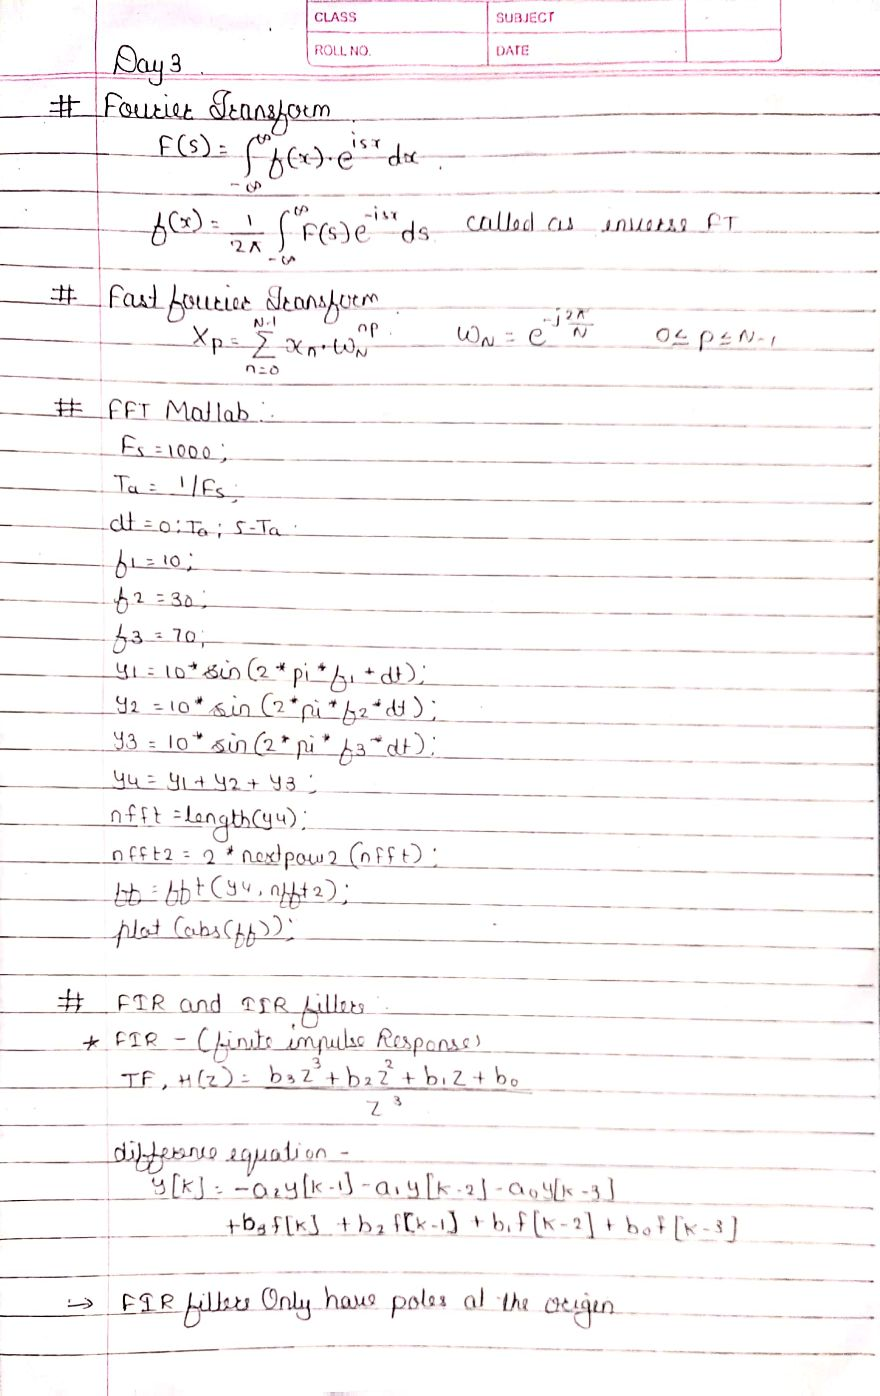 CLASS SUBJECT
ROLL NO. DATE
Day 3
# Fourier Transform
F(s) = ∫_{-∞}^{∞} f(x)·e^{isx} dx
f(x) = 1/2π ∫_{-∞}^{∞} F(s) e^{-isx} ds called as inverse FT
# Fast fourier Transform
X_p = Σ_{n=0}^{N-1} x_n · ω_N^{np} ω_N = e^{-j 2π/N} 0 ≤ p ≤ N-1
# FFT Matlab :
Fs = 1000;
Ta = 1/Fs;
dt = 0:Ta; 5-Ta
f1 = 10;
f2 = 30;
f3 = 70;
y1 = 10* sin(2*pi*f1*dt);
y2 = 10* sin(2*pi*f2*dt);
y3 = 10* sin(2*pi*f3*dt);
y4 = y1 + y2 + y3;
nfft = length(y4);
nfft2 = 2*nextpow2(nfft);
ff = fft(y4, nfft2);
plot (abs(ff));
# FIR and IIR filters
* FIR - (finite impulse Response)
TF, H(z) = (b_3z^3 + b_2z^2 + b_1z + b_0)/z^3
difference equation -
y[k] = -a_2y[k-1] - a_1y[k-2] - a_0y[k-3]
+b_3f[k] + b_2f[k-1] + b_1f[k-2] + b_0f[k-3]
→ FIR filters Only have poles at the origin